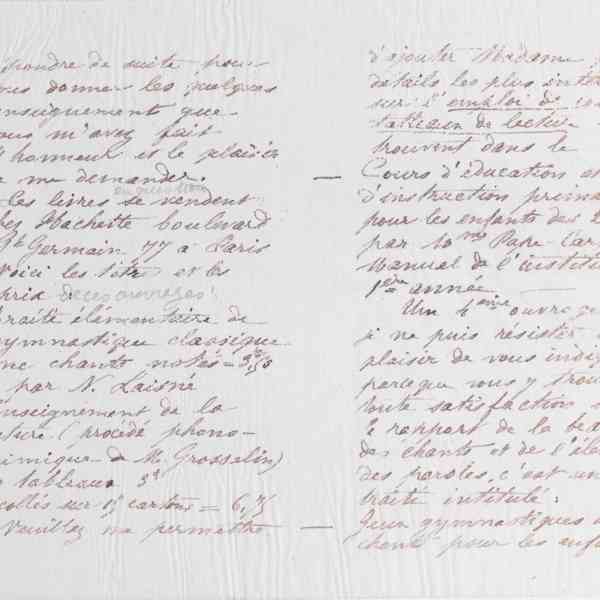 pondre de suite pour
vous donner les quelques
enseignement que
vous m'avez fait
l'honneur et le plaisir
de me demander.
Les livres en question se vendent
chez Hachette boulevard
St Germain 77 à Paris
Voici les titres et les
prix de ces ouvrages:
Traité élémentaire de
gymnastique classique
avec chants notés =
par N. Laisné
Enseignement de la
lecture (procédé phono-
mimique de M. Grosselin)
tableaux
collés sur 15 cartons = 6,75
Veuillez me permettre
d'ajouter Madame
détails les plus inté
sur l'emploi de
tableaux de lecture
trouvent dans le
— Cours d'éducation et
d'instruction prima
pour les enfants des
par Mme Pape-Car
Manuel de l'institu
1ère année —
Un 4ème ouvrage
je ne puis résister
plaisir de vous indiq
parceque vous y trou
toute satisfaction
le rapport de la beau
des chants et de l'élé
des paroles, c'est un
traité intitulé:
— Jeux gymnastiques
chant pour les enfa